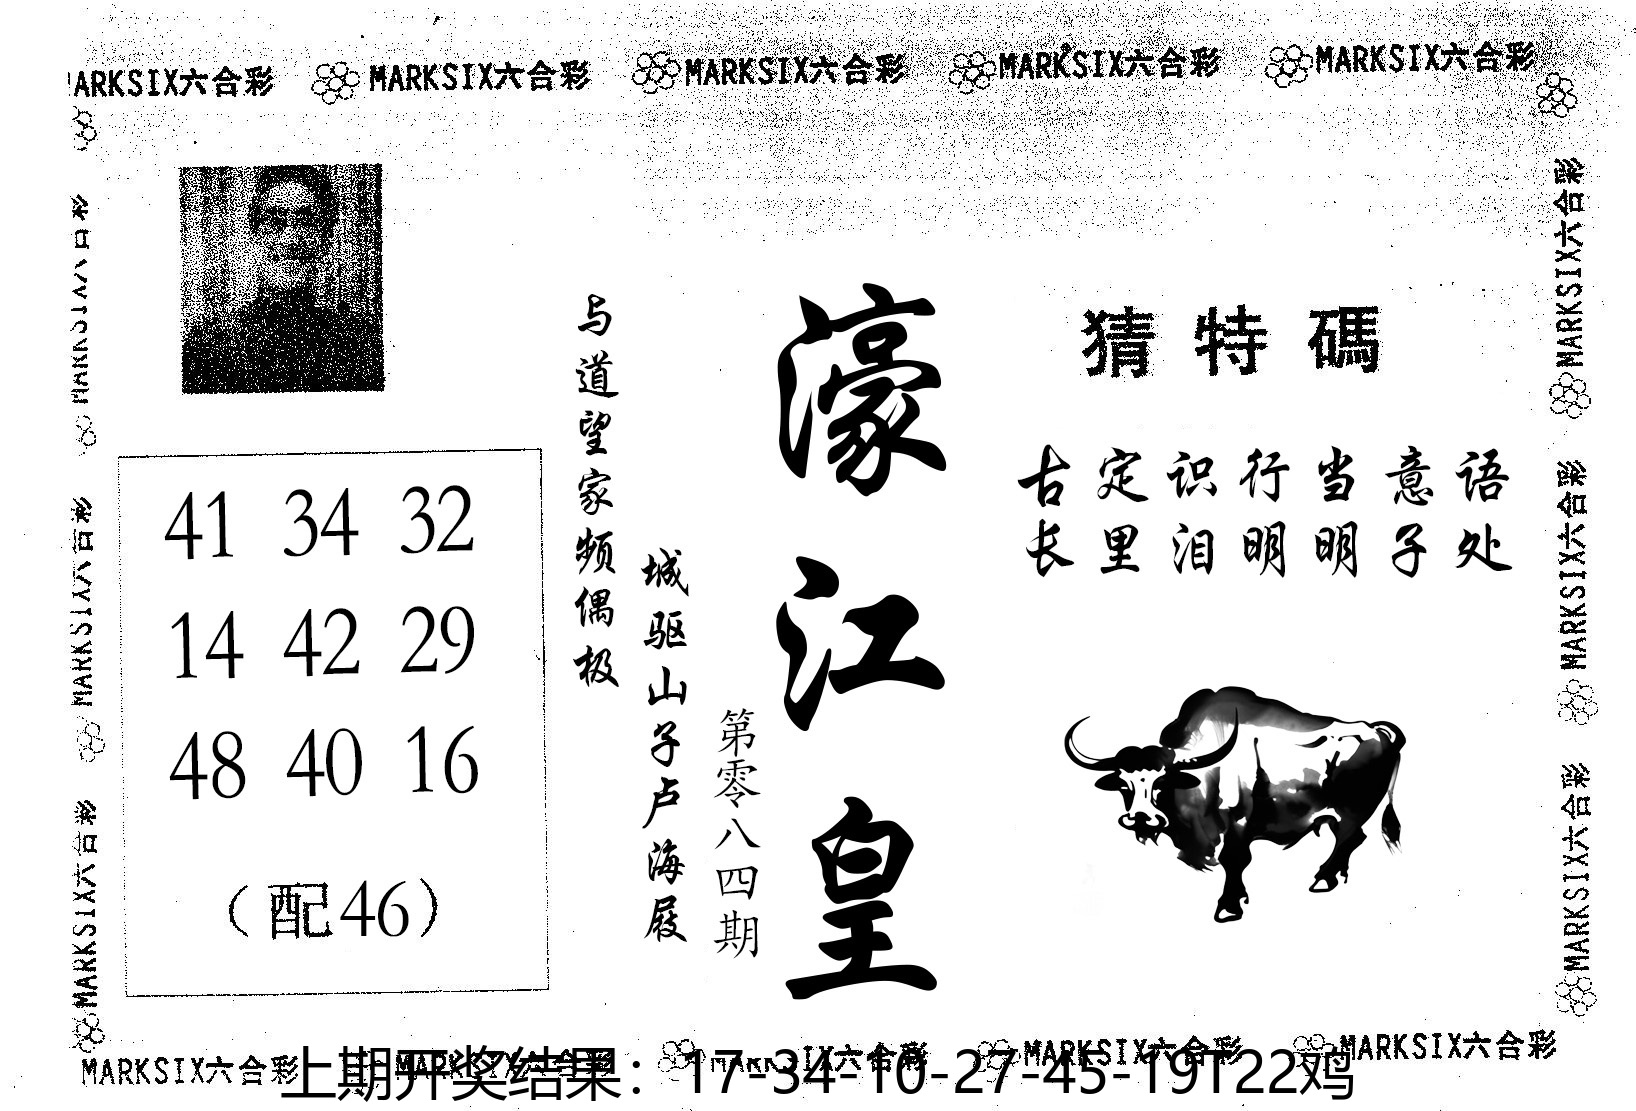 MARKSIX六合彩 MARKSIX六合彩 MARKSIX六合彩 MARKSIX六合彩 MARKSIX六合彩
MARKSIX六合彩
MARKSIX六合彩
MARKSIX六合彩
MARKSIX六合彩
MARKSIX六合彩
MARKSIX六合彩
猜特碼
古定识行当意语
长里泪明明子处
濠江皇
第零八四期
城驱山子卢海屐
与道望家频偶极
41 34 32
14 42 29
48 40 16
（配46）
MARKSIX六合彩 MARKSIX六合彩 MARKSIX六合彩 MARKSIX六合彩 MARKSIX六合彩
上期开奖结果：17-34-10-27-45-19T22鸡